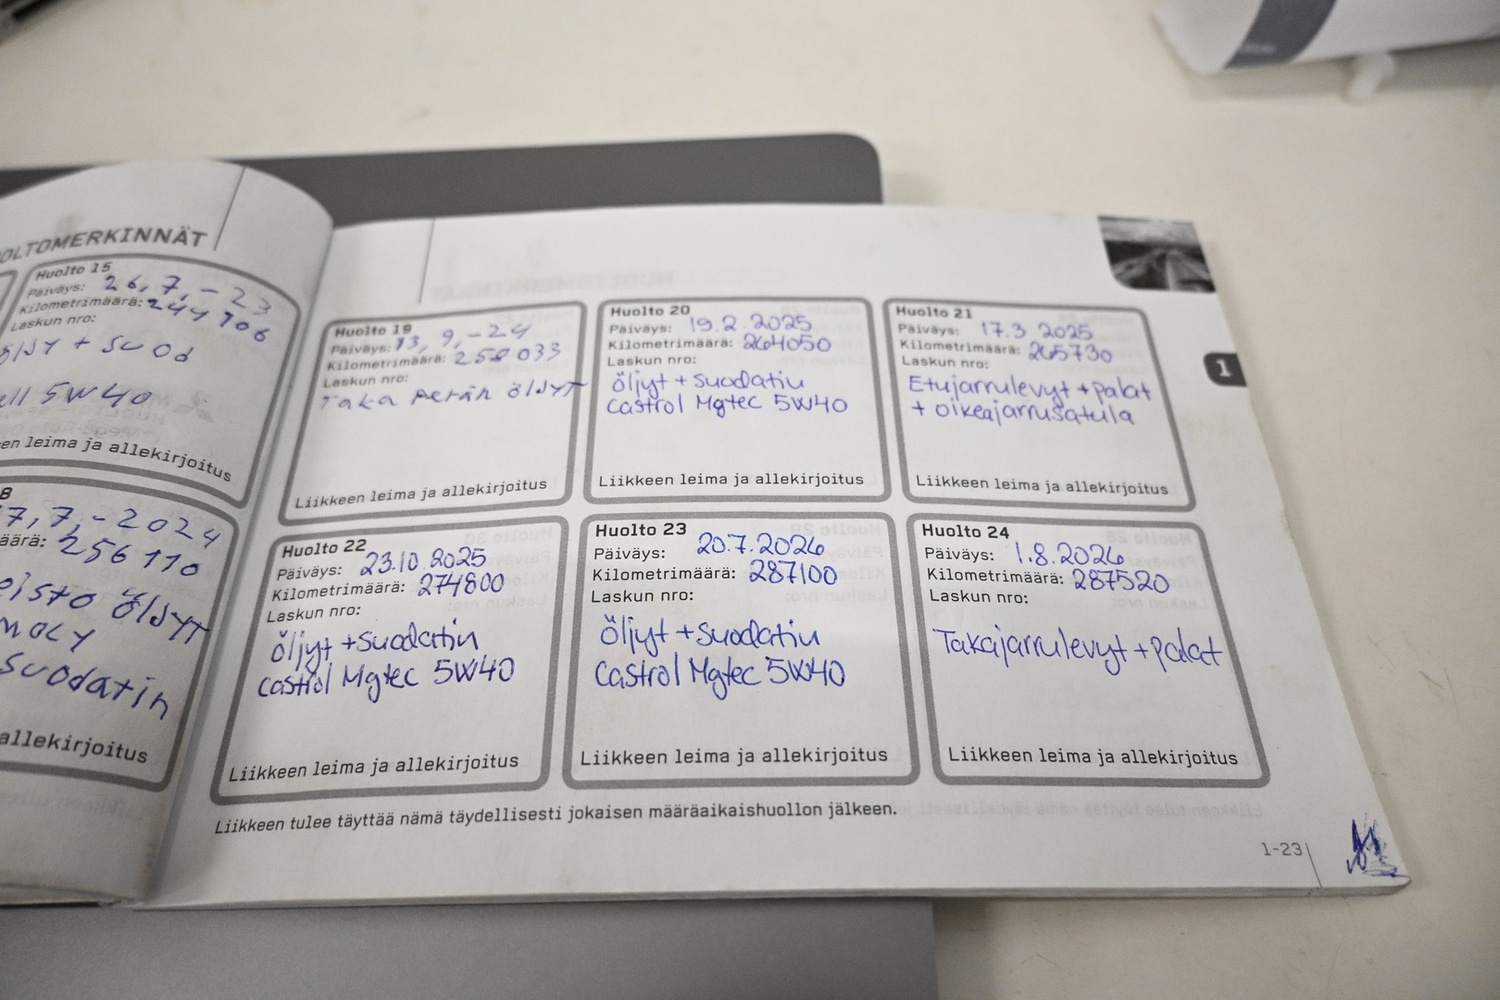 OLTOMERKINNÄT
Huolto 15
Päiväys: 26,7,-23
Kilometrimäärä: 244706
Laskun nro:
öljy + suod
ell 5W40
en leima ja allekirjoitus
8
7,7,-2024
äärä: 256110
eisto öljyt
suodatin
allekirjoitus
Huolto 19
Päiväys: 13,9,-24
Kilometrimäärä: 258033
Laskun nro:
Taka perän öljyt
Liikkeen leima ja allekirjoitus
Huolto 20
Päiväys: 19.2.2025
Kilometrimäärä: 264050
Laskun nro:
öljyt + suodatin
Castrol Mgtec 5W40
Liikkeen leima ja allekirjoitus
Huolto 21
Päiväys: 17.3.2025
Kilometrimäärä: 265730
Laskun nro:
Etujarrulevyt + palat
+ oikeajarrusatula
Liikkeen leima ja allekirjoitus
Huolto 22
Päiväys: 23.10.2025
Kilometrimäärä: 274800
Laskun nro:
öljyt + suodatin
Castrol Mgtec 5W40
Liikkeen leima ja allekirjoitus
Huolto 23
Päiväys: 20.7.2026
Kilometrimäärä: 287100
Laskun nro:
öljyt + suodatin
Castrol Mgtec 5W40
Liikkeen leima ja allekirjoitus
Huolto 24
Päiväys: 1.8.2026
Kilometrimäärä: 287520
Laskun nro:
Takajarrulevyt + palat
Liikkeen leima ja allekirjoitus
Liikkeen tulee täyttää nämä täydellisesti jokaisen määräaikaishuollon jälkeen.
1
1-23